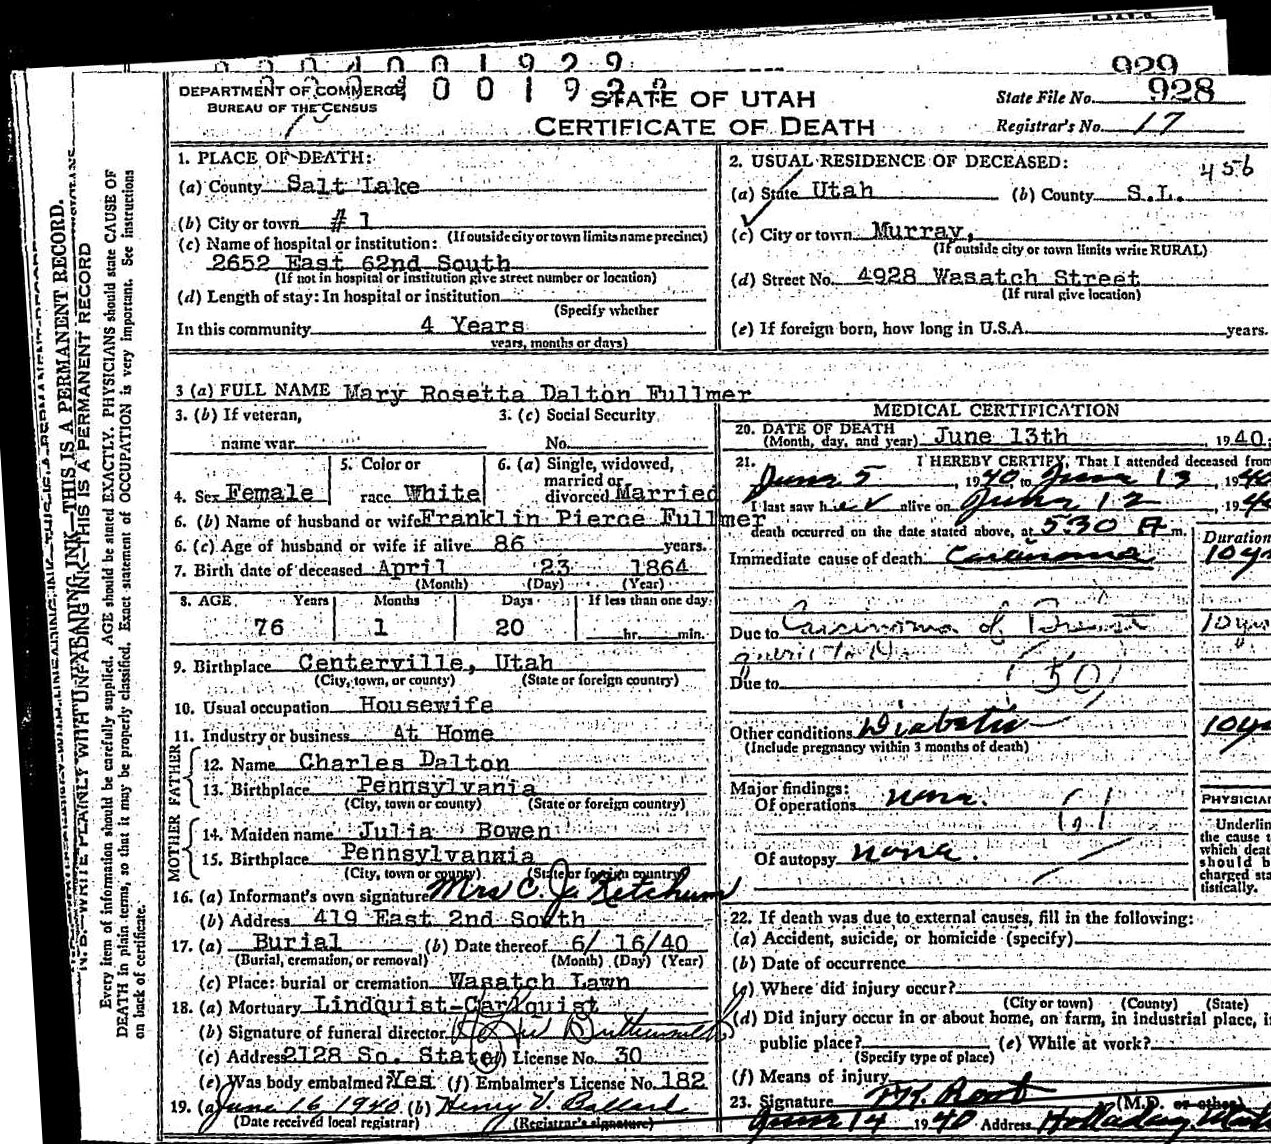 929
DEPARTMENT OF COMMERCE
BUREAU OF THE CENSUS
STATE OF UTAH
CERTIFICATE OF DEATH
State File No. 928
Registrar's No. 17
1. PLACE OF DEATH:
(a) County Salt Lake
(b) City or town #1
(If outside city or town limits name precinct)
(c) Name of hospital or institution:
2652 East 62nd South
(If not in hospital or institution give street number or location)
(d) Length of stay: In hospital or institution
(Specify whether
In this community 4 Years
years, months or days)
2. USUAL RESIDENCE OF DECEASED:
456
(a) State Utah (b) County S.L.
(c) City or town Murray,
(If outside city or town limits write RURAL)
(d) Street No. 4928 Wasatch Street
(If rural give location)
(e) If foreign born, how long in U.S.A. years.
3 (a) FULL NAME Mary Rosetta Dalton Fullmer
3. (b) If veteran,
name war
3. (c) Social Security
No.
4. Sex Female
5. Color or
race White
6. (a) Single, widowed,
married or
divorced Married
6. (b) Name of husband or wife Franklin Pierce Fullmer
6. (c) Age of husband or wife if alive 86 years.
7. Birth date of deceased April 23 1864
(Month) (Day) (Year)
8. AGE Years Months Days If less than one day
76 1 20 hr. min.
9. Birthplace Centerville, Utah
(City, town, or county) (State or foreign country)
10. Usual occupation Housewife
11. Industry or business At Home
FATHER
12. Name Charles Dalton
13. Birthplace Pennsylvania
(City, town or county) (State or foreign country)
MOTHER
14. Maiden name Julia Bowen
15. Birthplace Pennsylvannia
(City, town or county) (State or foreign country)
16. (a) Informant's own signature Mrs C. J. Ketchum
(b) Address 419 East 2nd South
17. (a) Burial (b) Date thereof 6/ 16/40
(Burial, cremation, or removal) (Month) (Day) (Year)
(c) Place: burial or cremation Wasatch Lawn
18. (a) Mortuary Lindquist-Carlquist
(b) Signature of funeral director
(c) Address 2128 So. State (d) License No. 30
(e) Was body embalmed? Yes (f) Embalmer's License No. 182
19. (a) June 16 1940 (b) Henry V. Ballard
(Date received local registrar) (Registrar's signature)
MEDICAL CERTIFICATION
20. DATE OF DEATH
(Month, day, and year) June 13th, 1940;
21. I HEREBY CERTIFY, That I attended deceased from
June 5, 1940 to June 13, 1940
I last saw her alive on June 12, 194
death occurred on the date stated above, at 530 A m.
Duration
Immediate cause of death Carcinoma 10 y
Due to Carcinoma of Breast 10 yrs
Due to
(50)
Other conditions Diabetis 10 y
(Include pregnancy within 3 months of death)
Major findings:
Of operations none.
Of autopsy none.
PHYSICIAN
Underlin
the cause t
which deat
should b
charged sta
tistically.
22. If death was due to external causes, fill in the following:
(a) Accident, suicide, or homicide (specify)
(b) Date of occurrence
(c) Where did injury occur?
(City or town) (County) (State)
(d) Did injury occur in or about home, on farm, in industrial place, i
public place? (e) While at work?
(Specify type of place)
(f) Means of injury
23. Signature (M.D. or other)
June 14 1940 Address Holladay
N. B.—WRITE PLAINLY WITH UNFADING INK—THIS IS A PERMANENT RECORD
Every item of information should be carefully supplied. AGE should be stated EXACTLY. PHYSICIANS should state CAUSE OF
DEATH in plain terms, so that it may be properly classified. Exact statement of OCCUPATION is very important. See instructions
on back of certificate.